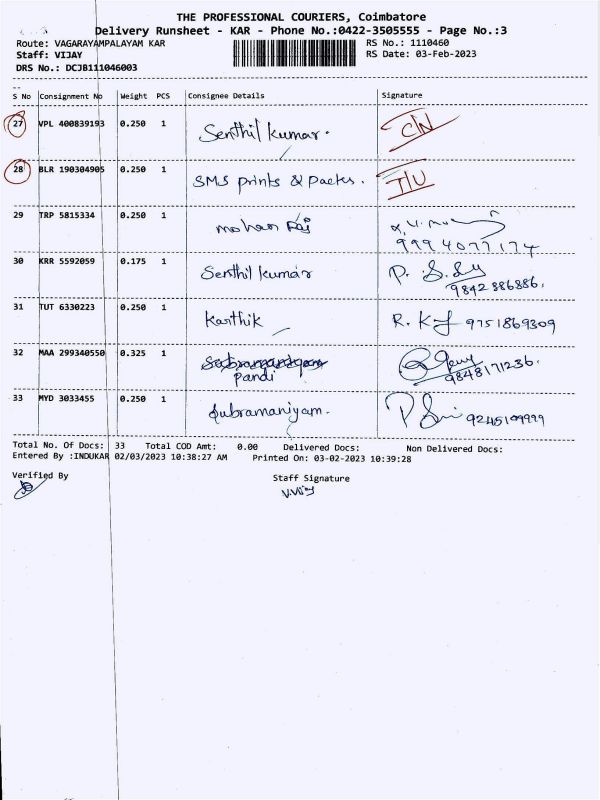 THE PROFESSIONAL COURIERS, Coimbatore
Delivery Runsheet - KAR - Phone No.:0422-3505555 - Page No.:3
Route: VAGARAYAMPALAYAM KAR RS No.: 1110460
Staff: VIJAY RS Date: 03-Feb-2023
DRS No.: DCJB111046003
S No Consignment No Weight PCS Consignee Details Signature
27 VPL 400839193 0.250 1 Senthil kumar. C/N
28 BLR 190304905 0.250 1 SMS prints & Packs. T/U
29 TRP 5815334 0.250 1 mohan Raj
9994077174
30 KRR 5592059 0.175 1 Senthil kumar P.
9842886886.
31 TUT 6330223 0.250 1 Karthik R. 9751869309
32 MAA 299340550 0.325 1
pandi 9848171236.
33 MYD 3033455 0.250 1 Subramaniyam. 9245109999
Total No. Of Docs: 33 Total COD Amt: 0.00 Delivered Docs: Non Delivered Docs:
Entered By :INDUKAR 02/03/2023 10:38:27 AM Printed On: 03-02-2023 10:39:28
Verified By Staff Signature
V.Vijy